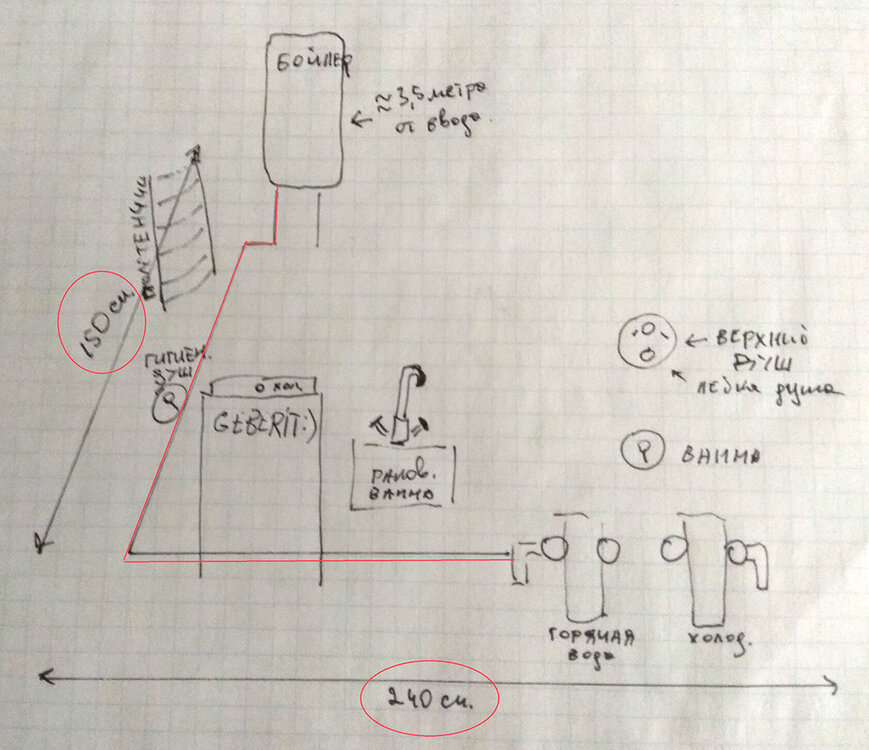 БОЙЛЕР
≈3,5 метра
от ввода.
ПОЛОТЕНЧИК
150 см.
ГИГИЕН.
ДУШ
0 хол
GEBERIT:)
РАКОВ.
ВАННА
ВЕРХНИЙ
ДУШ
ЛЕЙКА душа
ВАННА
ГОРЯЧАЯ
вода
ХОЛОД.
240 см.